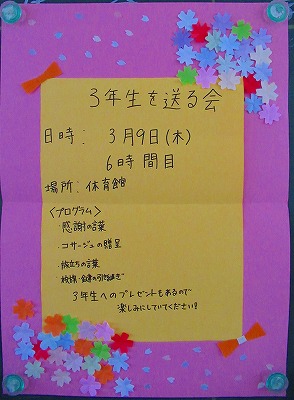 3年生を送る会
日時: 3月9日(木)
6時間目
場所:体育館
〈プログラム〉
・感謝の言葉
・コサージュの贈呈
・旅立ちの言葉
3年生へのプレゼントもあるので
楽しみにしていてください!